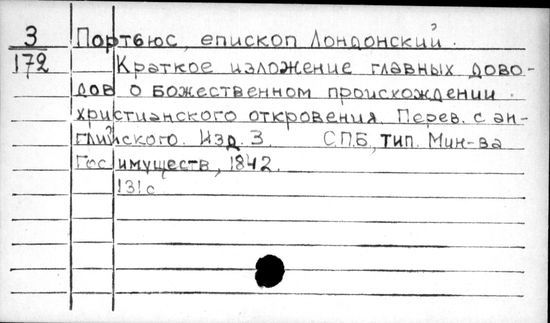 3 Портбюс, епископ Лондонский.
172 Краткое изложение главных дово-
дов о божественном происхождении
христианского откровения. Перев. с ан-
глийского. Изд. 3. СПБ, тип. Мин-ва
Гос имуществ, 1842.
131 с